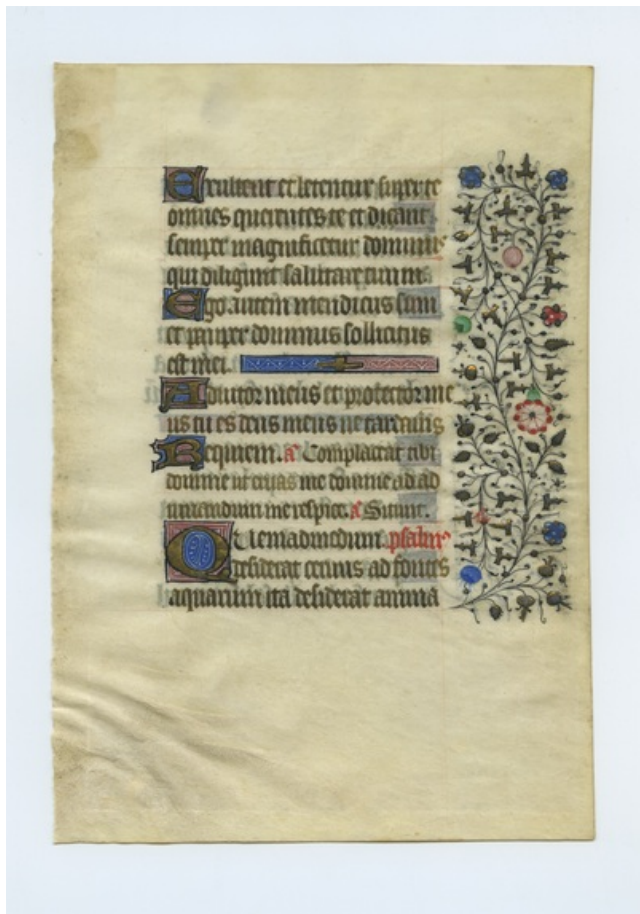 Exultent et letentur super te
omnes querentes te et dicant
semper magnificetur dominus
qui diligunt salutare tuum
Ego autem mendicus sum
et pauper dominus sollicitus
est mei.
Adiutor meus et protector me
us tu es deus meus ne tardaveris
Requiem. a Complaceat tibi
domine ut eripias me domine ad ad
iuvandum me respice. a Sitivit.
Quemadmodum psalmus
desiderat cervus ad fontes
aquarum ita desiderat anima